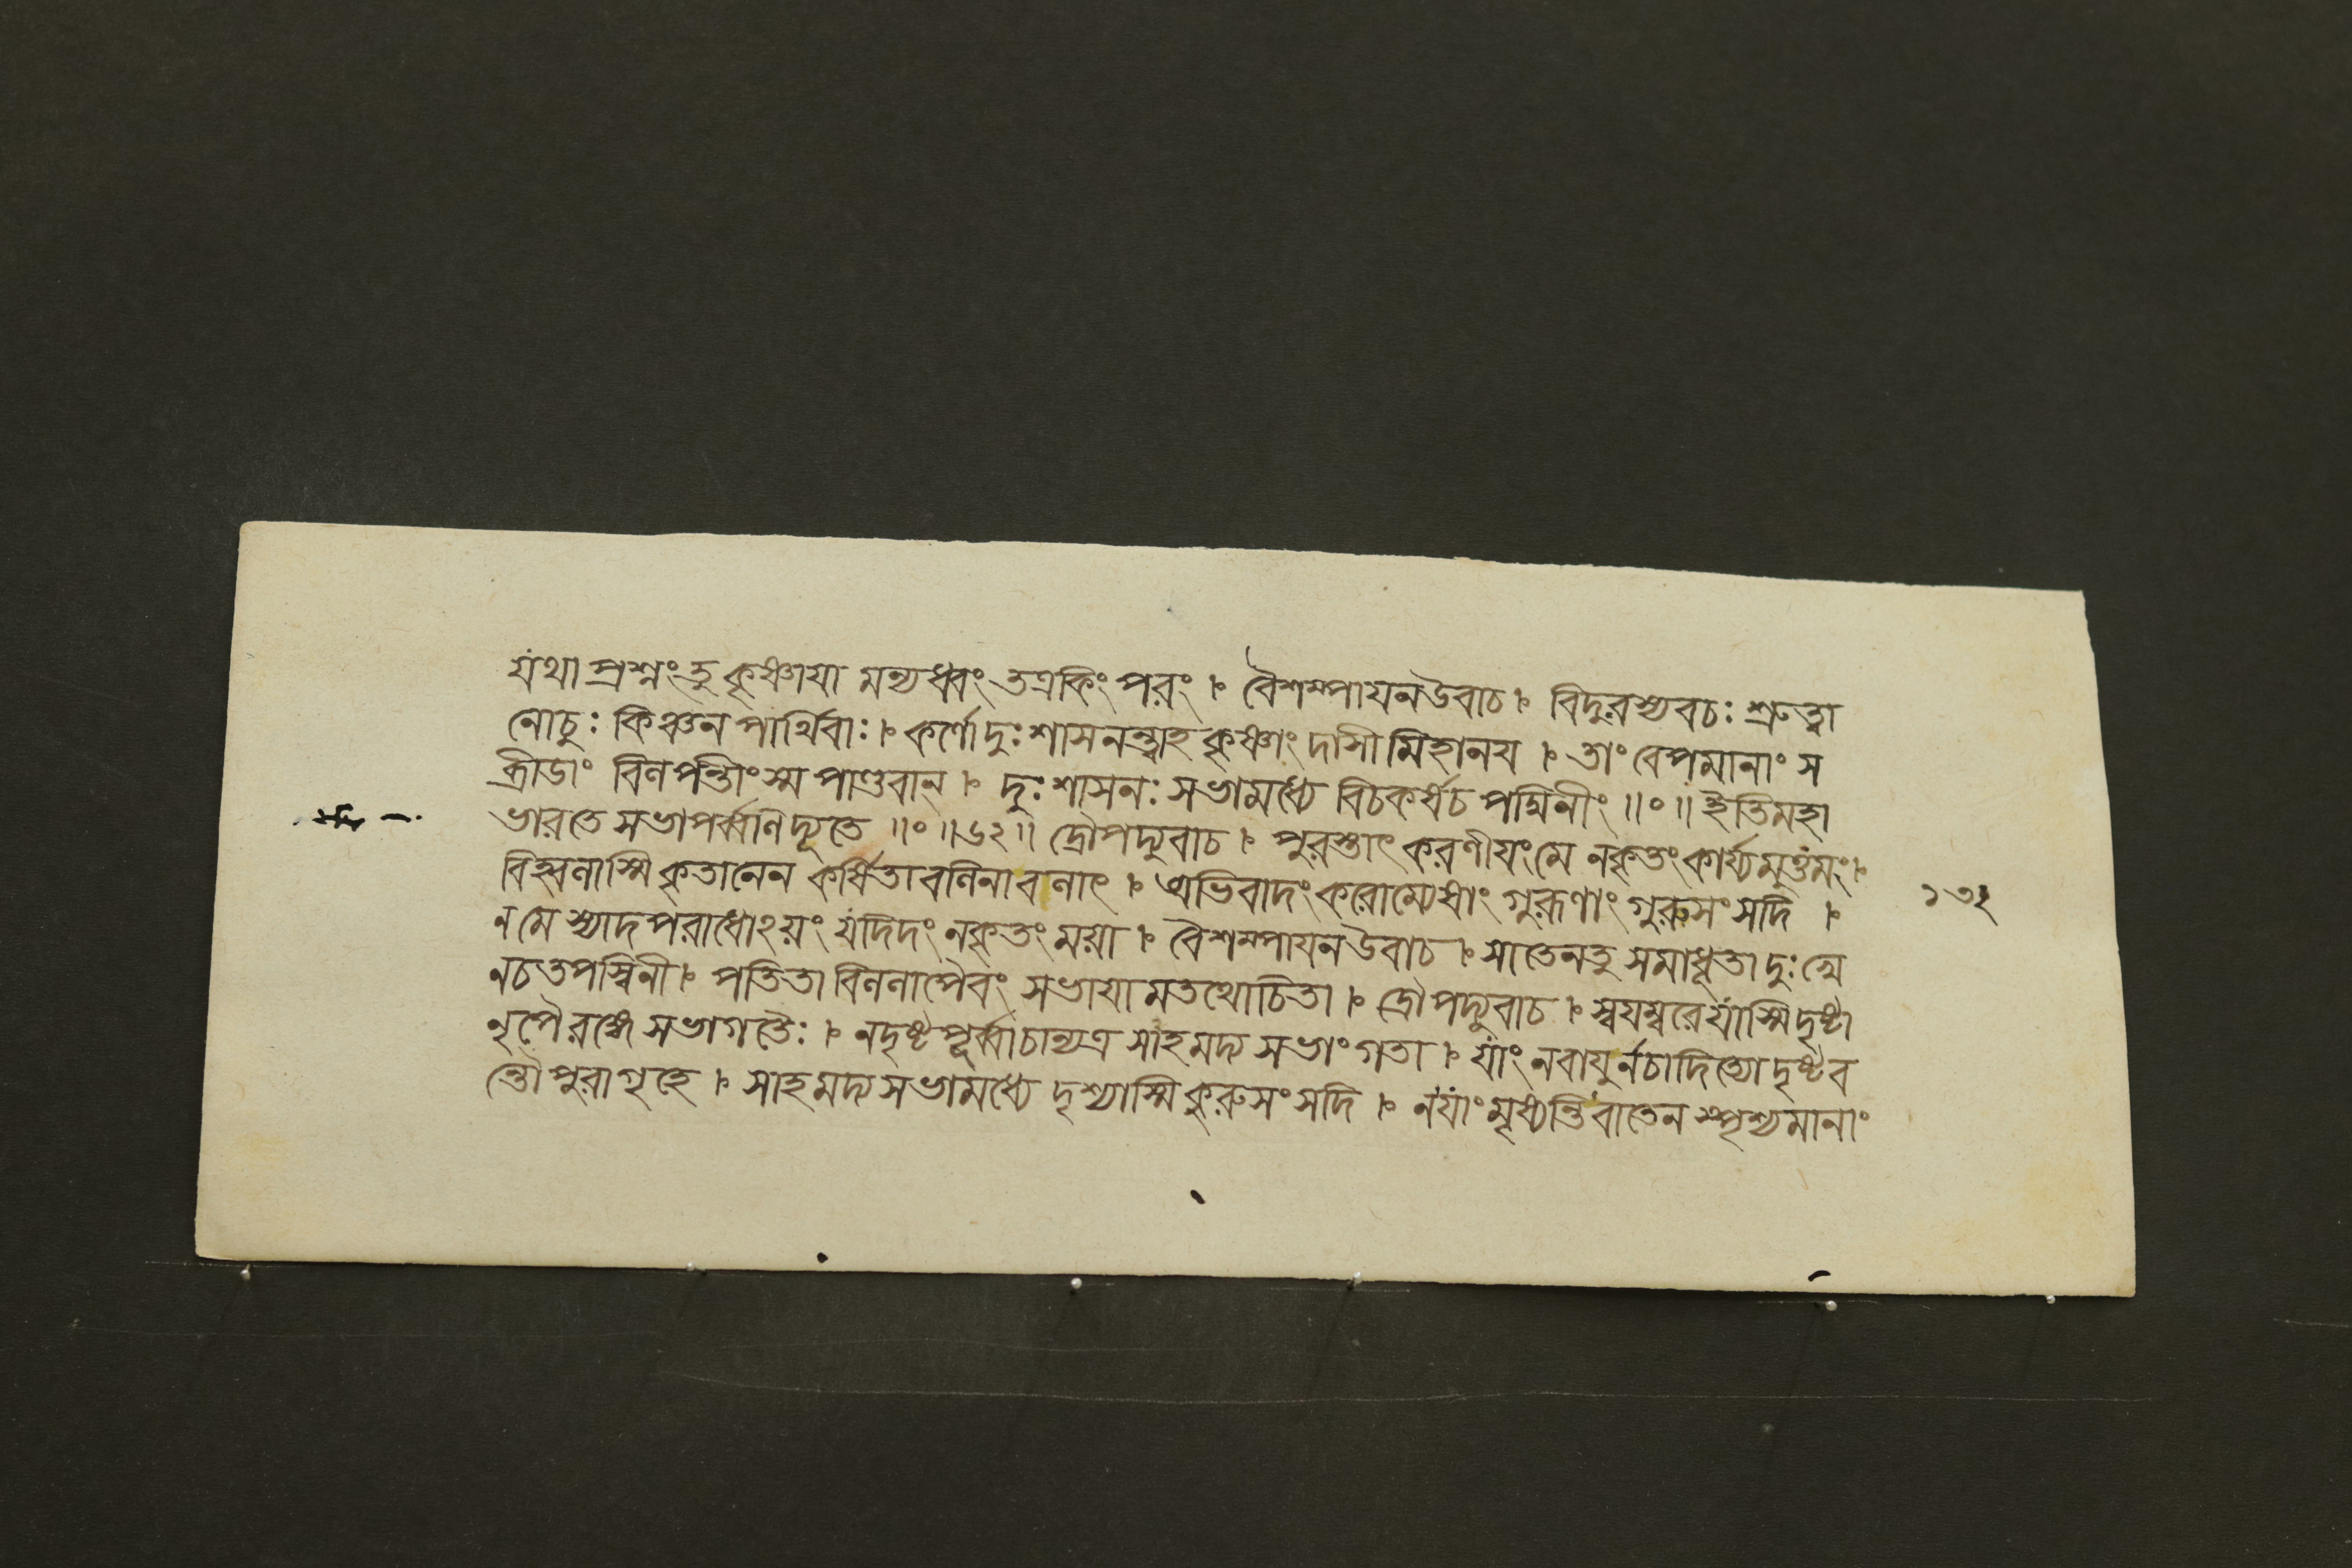 যথা প্রশ্নং তু কৃষ্ণায়া মন্যধ্বং তত্রকিং পরং । বৈশম্পায়নউবাচ । বিদুরস্যবচঃ শ্রুত্বা
নোচুঃ কিঞ্চন পার্থিবাঃ । কর্ণো দুঃশাসনন্ত্বাহ কৃষ্ণাং দাসী মিহানয় । তাং বেপমানাং স
ব্রীডাং বিলপন্তীংস্ম পাণ্ডবান্ । দুঃশাসনঃ সভামধ্যে বিচকর্ষচ পদ্মিনীং ॥০॥ ইতিমহা
ভারতে সভাপর্ব্বণিদ্যূতে ॥০॥৬২॥ দ্রৌপদ্যুবাচ । পুরস্তাৎ করণীয়ংমে নকৃতংকার্য্যমুত্তমং ।
বিহ্বলাস্মি কৃতানেন কর্ষিতাবলিনাবলাৎ । অভিবাদংকরোম্যেষাং গুরূণাং গুরুসংসদি ।
ন মে স্যাদপরাধোঽয়ং যদিদং নকৃতংময়া । বৈশম্পায়ন উবাচ । সাতেনতু সমাধূতাদুঃখে
নচতপস্বিনী । পতিতা বিললাপৈবং সভায়ামতথোচিতা । দ্রৌপদ্যুবাচ । স্বয়ম্বরেযাস্মিদৃষ্টা
নৃপৈরঙ্গে সভাগতৈঃ । নদৃষ্টপূর্ব্বাচান্যত্র সাহমদ্য সভাংগতা । যাং নবায়ুর্নচাদিত্যোদৃষ্টব
ন্তৌপুরাগৃহে । সাহমদ্যসভামধ্যে দৃশ্যাস্মি কুরুসংসদি । নযাং মৃষ্যন্তিবাতেন স্পৃশ্যমানাং
১৩২